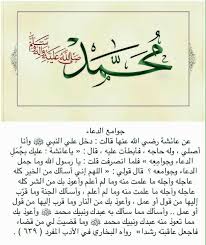 محمد
صلى الله عليه وسلم
جوامع الدعاء
عن عائشة رضي الله عنها قالت : دخل علي النبي ﷺ وأنا
أصلي ، وله حاجه ، فأبطأت عليه ، قال : " يا عائشة ! عليك بجمل
الدعاء وجوامعه " فلما انصرفت قلت : يا رسول الله وما جمل
الدعاء وجوامعه ؟ قال قولي : " اللهم إني أسألك من الخير كله
عاجله وآجله ما علمت منه وما لم أعلم وأعوذ بك من الشر كله
عاجله وآجله ما علمت منه وما لم أعلم وأسألك الجنة وما قرب
إليها من قول أو عمل ، وأعوذ بك من النار وما قرب إليها من قول
أو عمل .. وأسألك مما سألك به عبدك ونبيك محمد ﷺ وأعوذ بك
مما تعوذ منه عبدك ونبيك محمد ﷺ وما قضيت لي من قضاء
فاجعل عاقبته رشدا » رواه البخاري في الأدب المفرد ( ٦٣٩ ) .